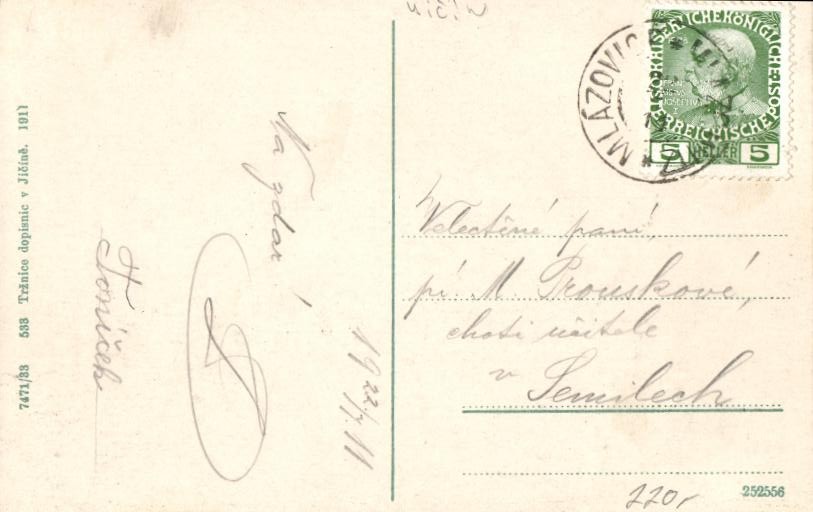 Jičín
KAISERLICHEKÖNIGLICHE
ÖSTERREICHISCHE POST
5 HELLER 5
MLÁZOVICE * MLAZ
7471/33 533 Tržnice dopisnic v Jičíně. 1911
Na zdar!
Toníček
19 22/7 11
Velectěné paní,
pí. M. Prouskové,
choti učitele
v Semilech
220,-
252556